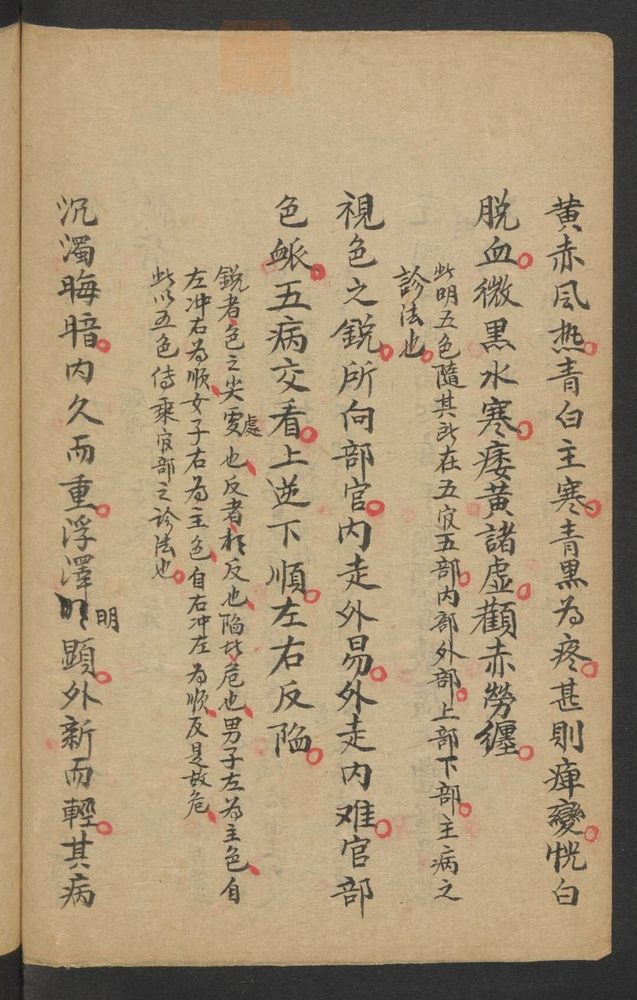 黄赤风热青白主寒青黑为疼甚則痺變恍白
脱血微黑水寒痿黄諸虚顴赤勞纏
此明五色隨其所在五官五部内部外部上部下部主病之
診法也
視色之鋭所向部官内走外易外走内难官部
色脈五病交看上逆下順左右反陥
鋭者色之尖處也反者相反也陥者危也男子左为主色自
左冲右为順女子右为主色自右冲左为順反是故危
此以五色传乘官部之診法也
沉濁晦暗内久而重浮澤明顕外新而輕其病